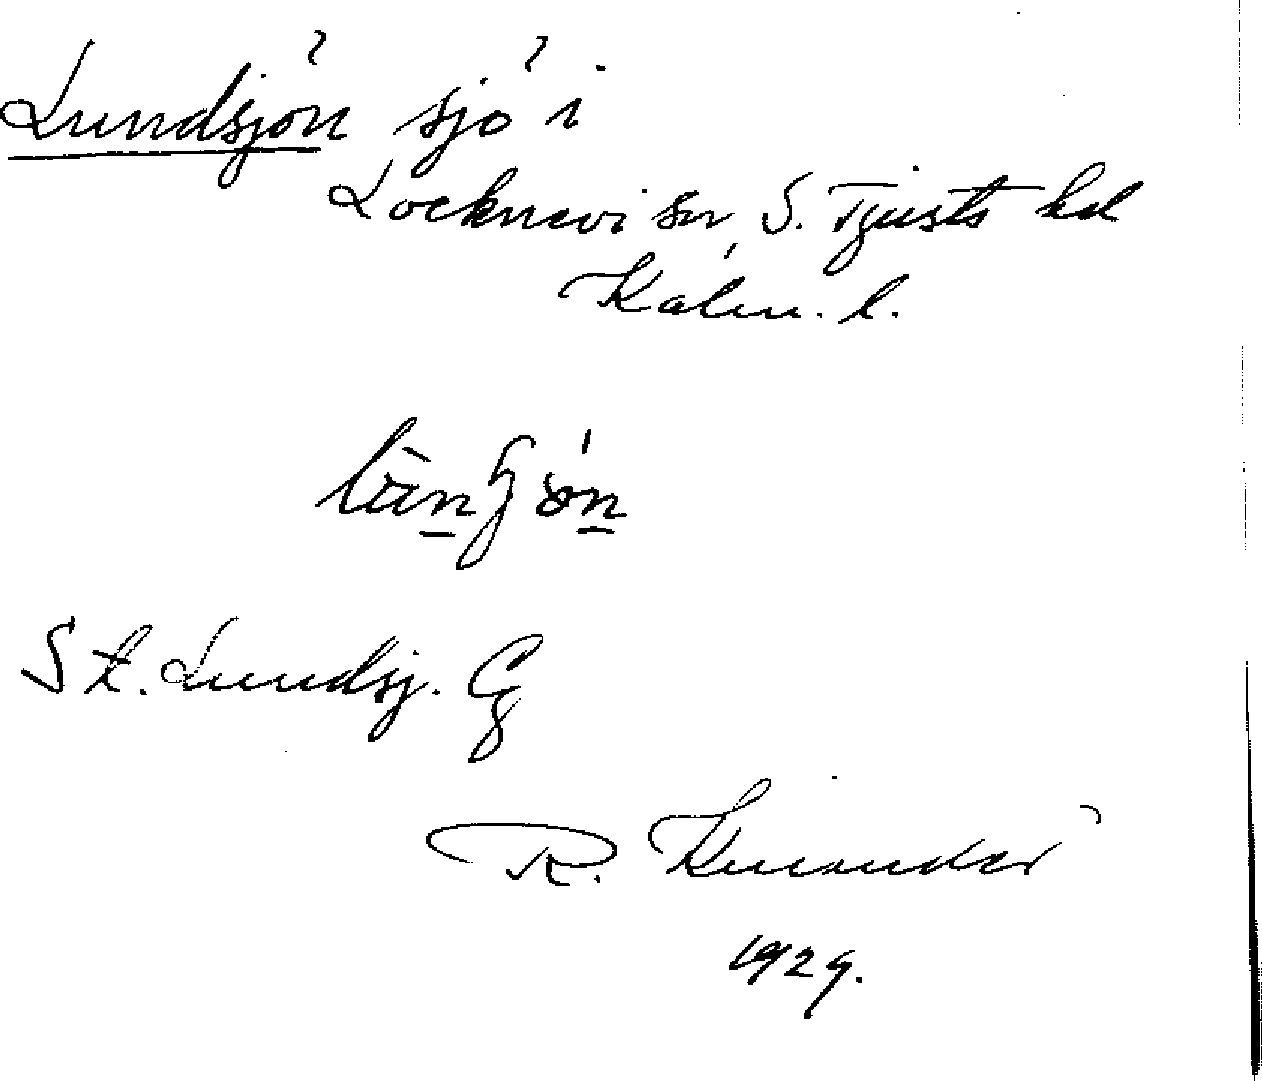 Lundsjön sjö i
Locknevi sn, S. Tjusts hd
Kalm. l.
St. Lundsj. G
R. Kinander
1929.